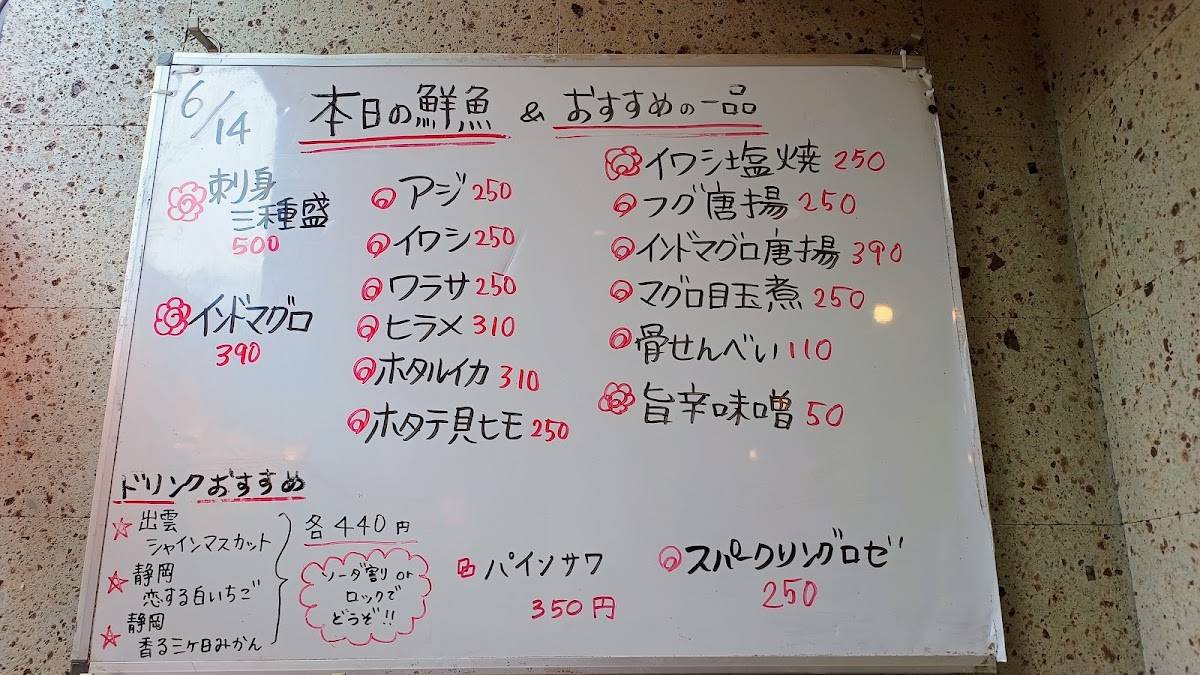 6/14
本日の鮮魚 & おすすめの一品
刺り身
三種盛
500
インドマグロ
390
アジ 250
イワシ 250
ワラサ 250
ヒラメ 310
ホタルイカ 310
ホタテ貝ヒモ 250
イワシ塩焼 250
フグ唐揚 250
インドマグロ唐揚 390
マグロ目玉煮 250
骨せんべい 110
旨辛味噌 50
ドリンクおすすめ
出雲
シャインマスカット
静岡
恋する白いちご
静岡
香る三ケ日みかん
各440円
ソーダ割り or
ロックで
どうぞ!!
パインサワ
350円
スパークリングロゼ
250